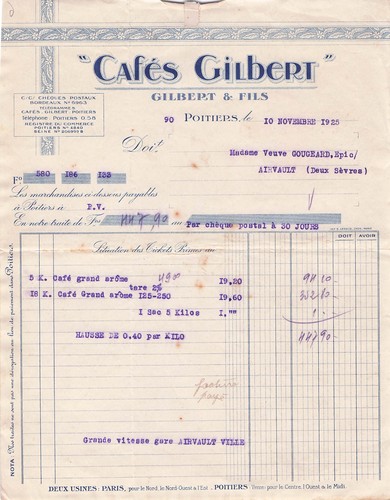 "Cafés Gilbert"
GILBERT & FILS
C.C. CHÈQUES POSTAUX
BORDEAUX Nº 5963
TÉLÉGRAMMES
CAFÉS. GILBERT. POITIERS
Téléphone: POITIERS 0.58
REGISTRE DU COMMERCE
POITIERS Nº 4840
90 POITIERS, le 10 NOVEMBRE 1925
Doit
Madame Veuve GOUGEARD, Epic/
AIRVAULT (Deux Sèvres)
Fº 580 186 133
Les marchandises ci-dessous payables
à Poitiers à P.V.
En notre traite de Frs 447,90 au Par chèque postal à 30 JOURS
DOIT AVOIR
Situation des Tickets Primes au
5 K. Café grand arôme 4.900 19.20 94 10
tare 2%
18 K. Café Grand arôme 125-250 19.60 352 80
1 Sac 5 Kilos 1,"" 1 -
HAUSSE DE 0.40 par KILO 447 90
facture
payé
Grande vitesse gare AIRVAULT VILLE
DEUX USINES: PARIS, pour le Nord, le Nord-Ouest & l'Est. POITIERS pour le Centre l'Ouest & le Midi.